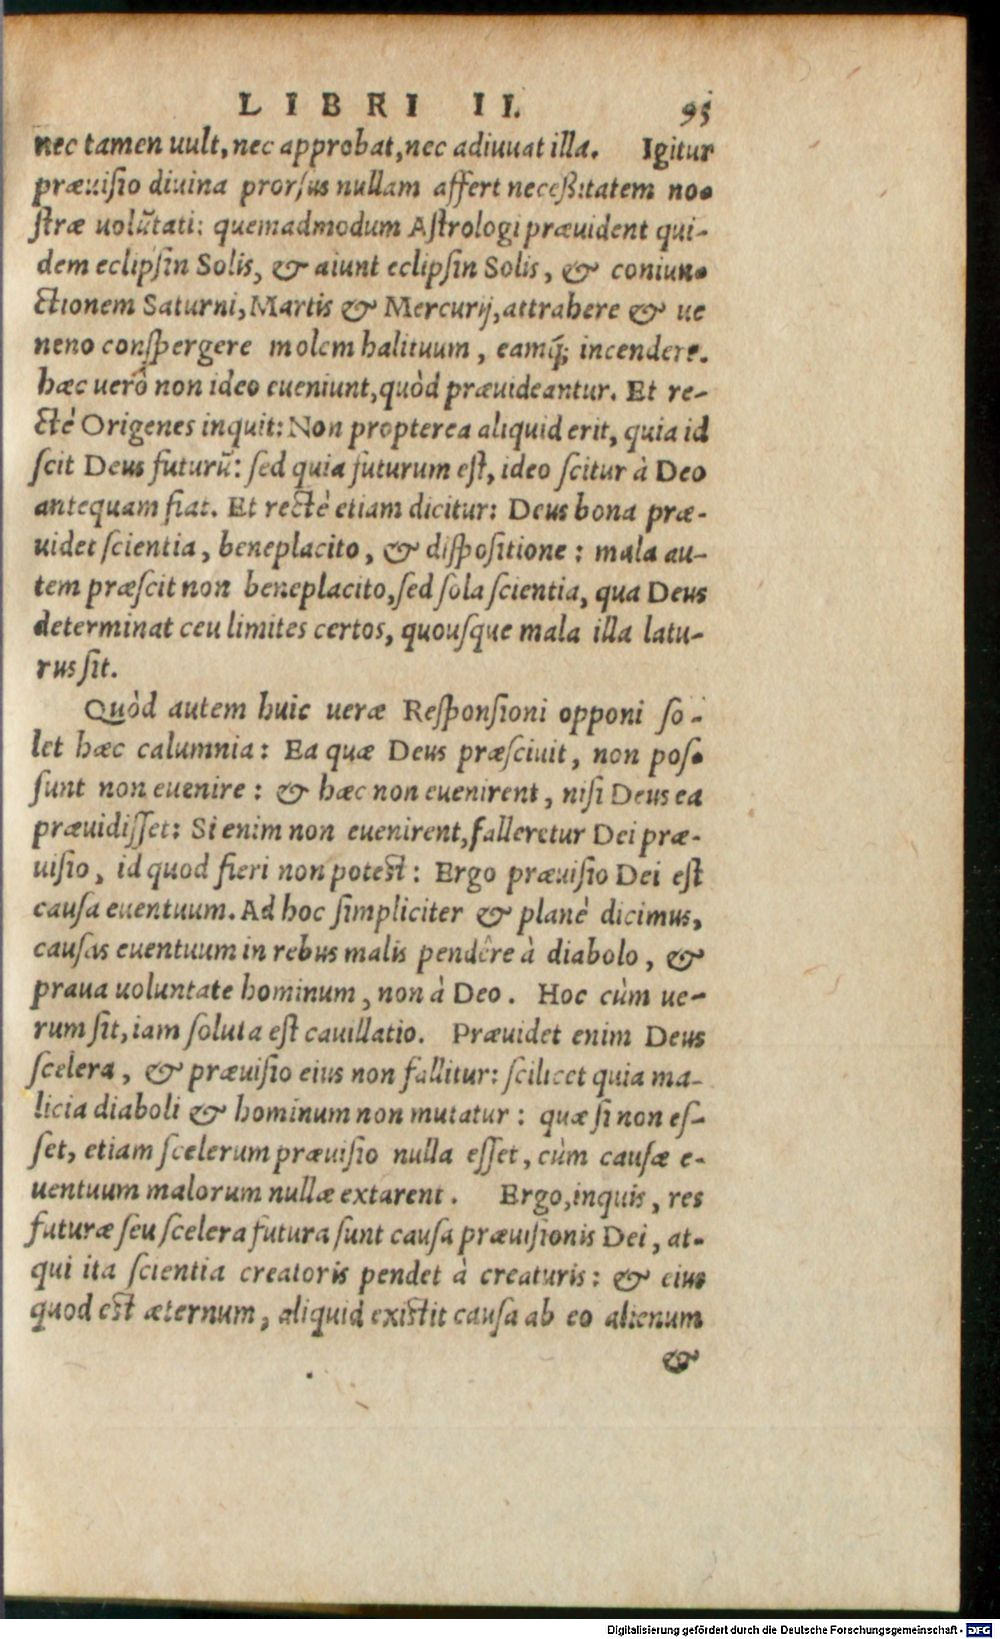 LIBRI II. 95
nec tamen uult, nec approbat, nec adiuuat illa. Igitur
præuiſio diuina prorſus nullam affert neceßitatem no-
ſtræ uolūtati: quemadmodum Aſtrologi præuident qui-
dem eclipſin Solis, & aiunt eclipſin Solis, & coniun-
ctionem Saturni, Martis & Mercurij, attrahere & ue
neno conſpergere molem halituum, eamq́; incendere.
hæc uerò non ideo eueniunt, quòd præuideantur. Et re-
ctè Origenes inquit: Non propterea aliquid erit, quia id
ſcit Deus futurū: ſed quia futurum eſt, ideo ſcitur à Deo
antequam fiat. Et rectè etiam dicitur: Deus bona præ-
uidet ſcientia, beneplacito, & diſpoſitione: mala au-
tem præſcit non beneplacito, ſed ſola ſcientia, qua Deus
determinat ceu limites certos, quouſque mala illa latu-
rus ſit.
Quòd autem huic ueræ Reſponſioni opponi ſo-
let hæc calumnia: Ea quæ Deus præſciuit, non poſ-
ſunt non euenire: & hæc non euenirent, niſi Deus ea
præuidiſſet: Si enim non euenirent, falleretur Dei præ-
uiſio, id quod fieri non poteſt: Ergo præuiſio Dei eſt
cauſa euentuum. Ad hoc ſimpliciter & planè dicimus,
cauſas euentuum in rebus malis pendêre à diabolo, &
praua uoluntate hominum, non à Deo. Hoc cùm ue-
rum ſit, iam ſoluta eſt cauillatio. Præuidet enim Deus
ſcelera, & præuiſio eius non fallitur: ſcilicet quia ma-
licia diaboli & hominum non mutatur: quæ ſi non eſ-
ſet, etiam ſcelerum præuiſio nulla eſſet, cùm cauſæ e-
uentuum malorum nullæ extarent. Ergo, inquis, res
futuræ ſeu ſcelera futura ſunt cauſa præuiſionis Dei, at-
qui ita ſcientia creatoris pendet à creaturis: & eius
quod eſt æternum, aliquid exiſtit cauſa ab eo alienum
&
Digitalisierung gefördert durch die Deutsche Forschungsgemeinschaft - DFG